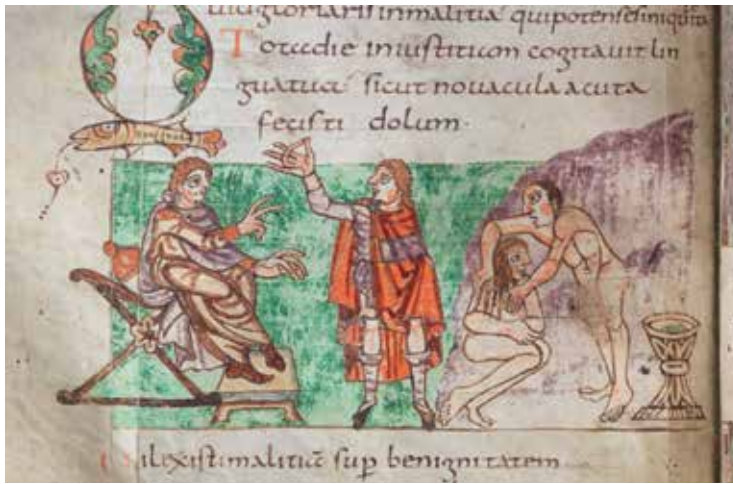 Quid gloriaris in malitia qui potens es iniquita
Tota die iniustitiam cogitauit lin
gua tua sicut nouacula acuta
fecisti dolum·
Dilexisti malitiā sup benignitatem